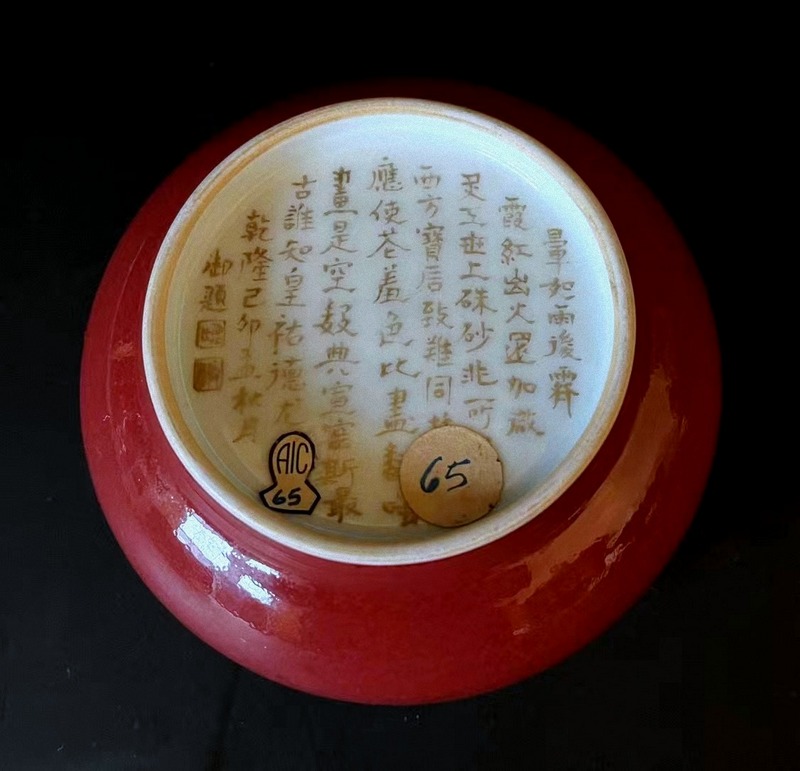 暈如雨後霽
霞紅出火還加微
炙工世上硃砂非所
西方寶石致難同
應使花羞色比盡
畫是空數典宣窯斯最
古誰知皇祜德
乾隆己卯孟秋月
御題
AIC
65
65